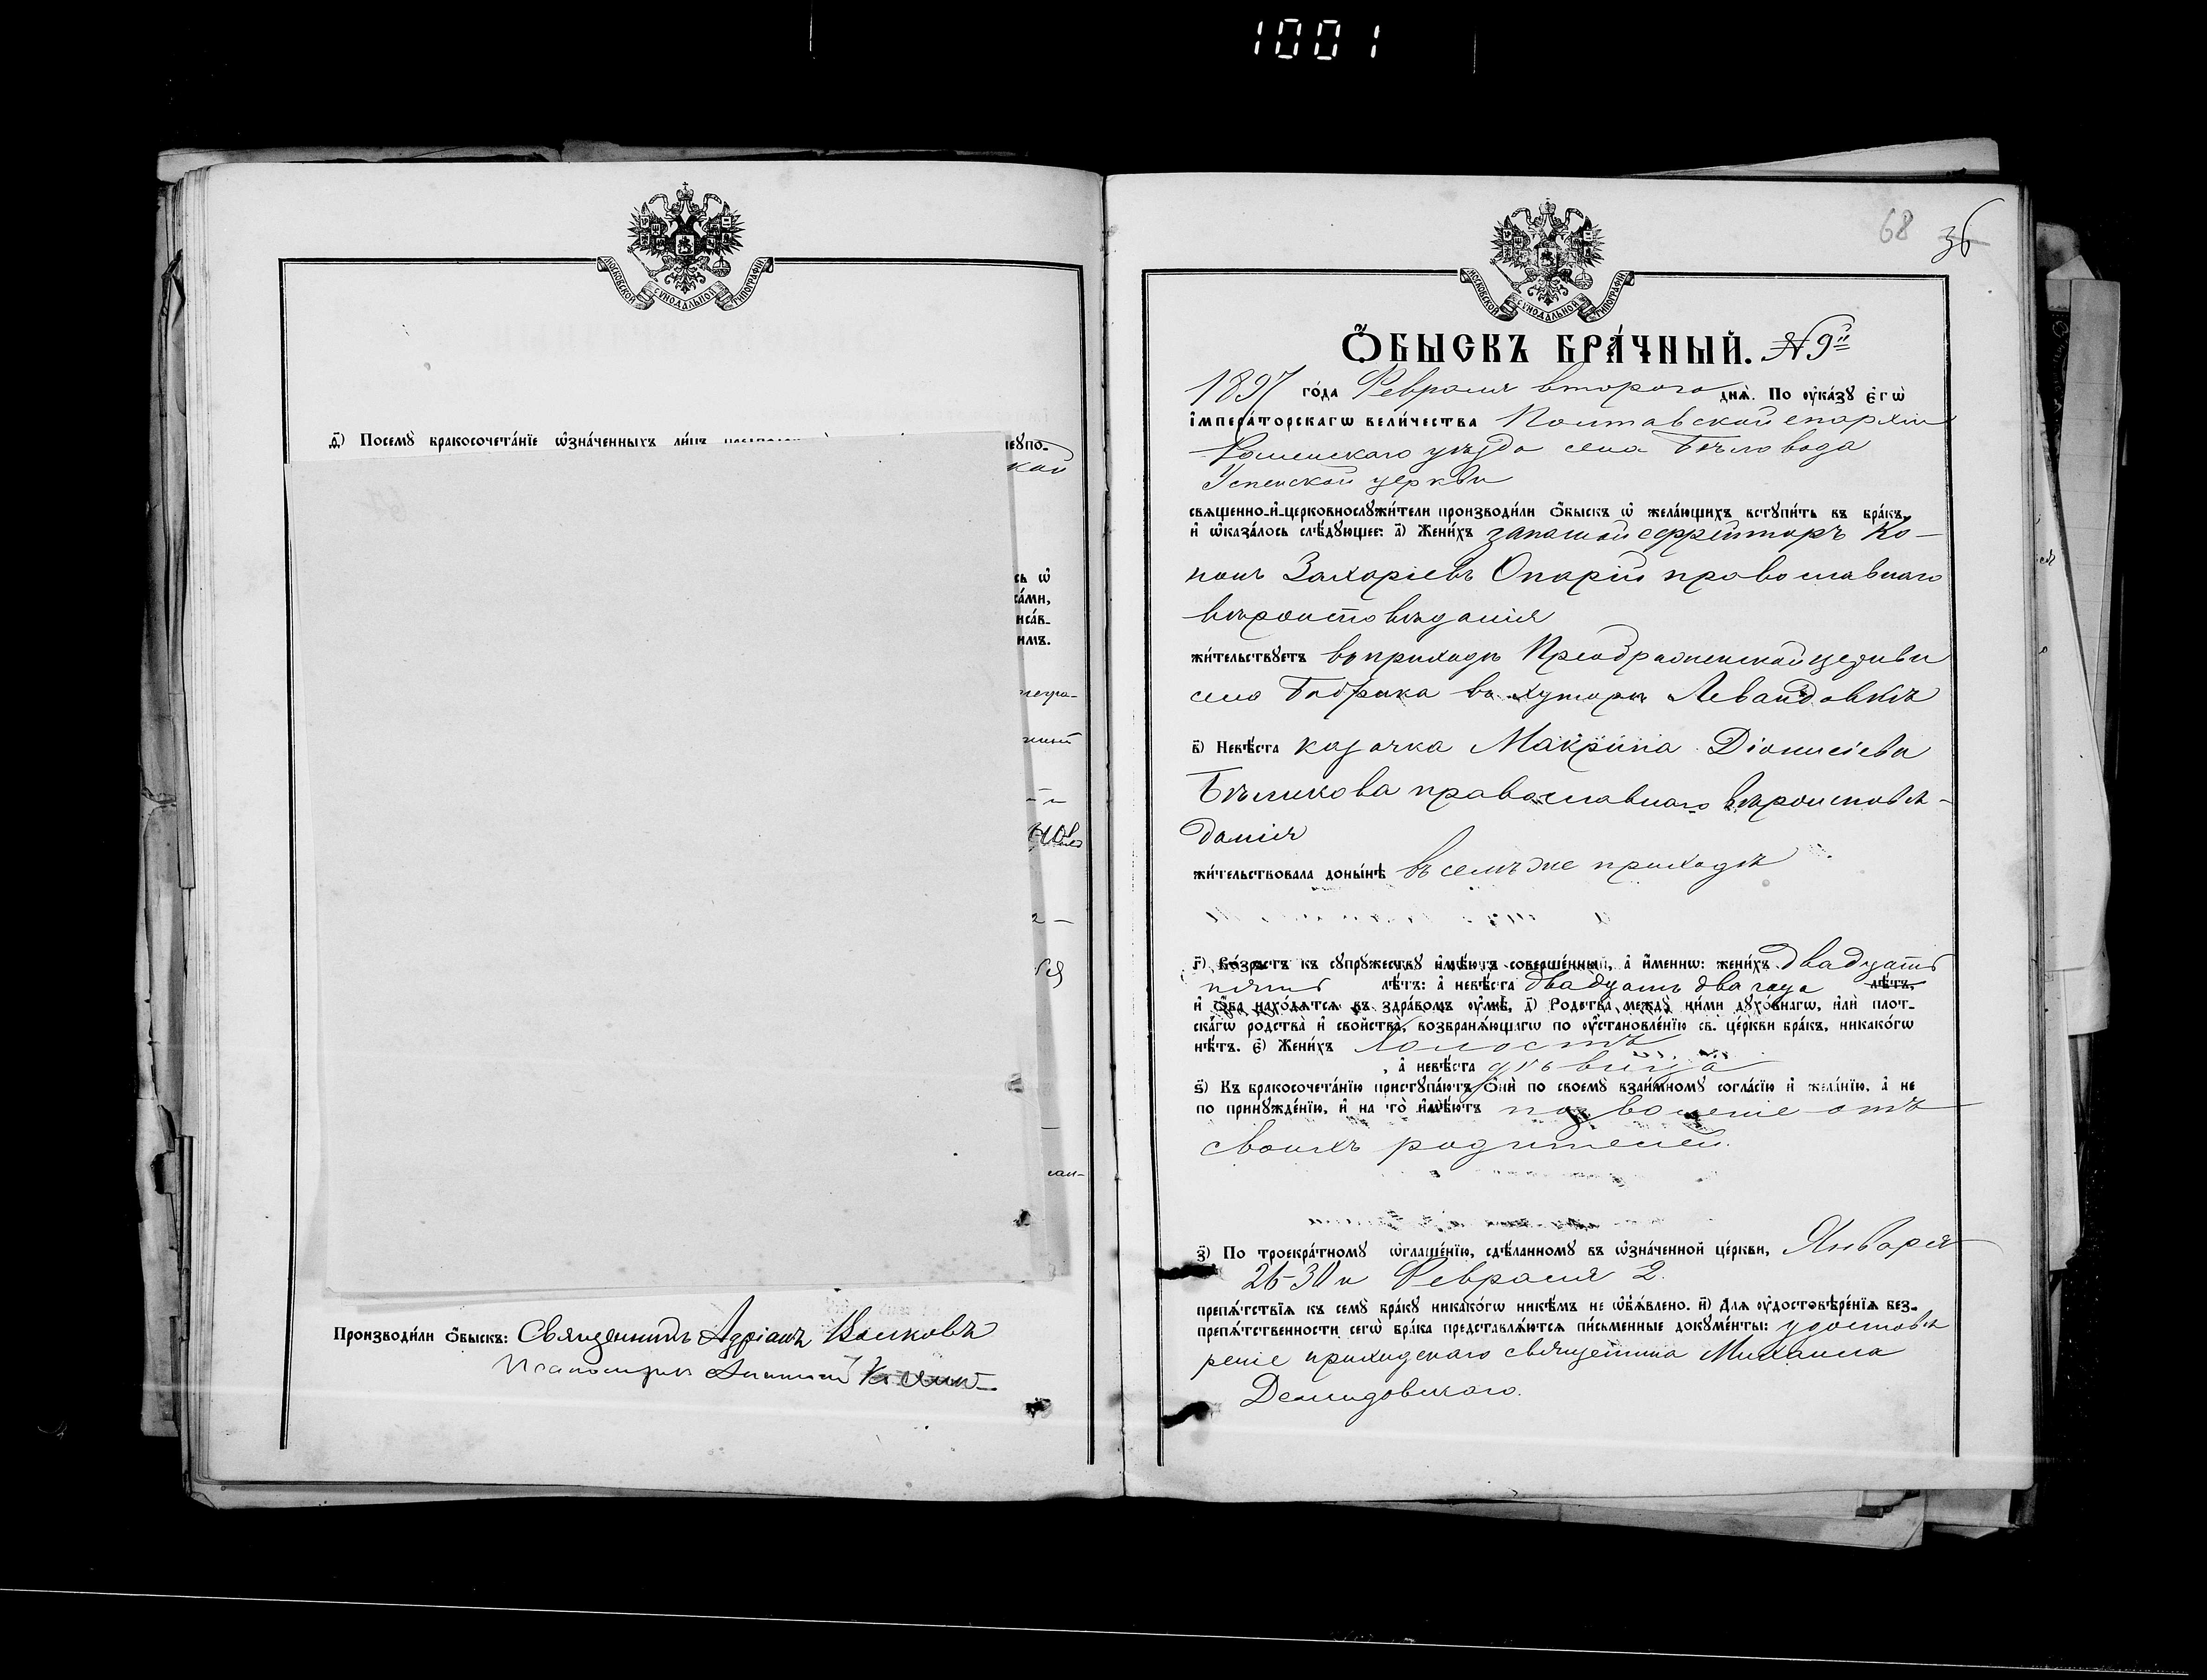 1001
МОСКОВСКОЙ СѴНОДАЛЬНОЙ ТИПОГРАФІИ
д҃) Посемꙋ̀ бракосочета́нїе ѡ҆зна́ченныхъ ли́цъ
неупо-
кой
сь ѡ҆
са́ми,
иса́в-
имъ.
Производи́ли ѻ҆́быскъ: Священникъ Адріанъ Волковъ
Псаломщикъ
68 36
МОСКОВСКОЙ СѴНОДАЛЬНОЙ ТИПОГРАФІИ
Ѻ҆́БЫСКЪ БРА́ЧНЫЙ. № 9й
1897 го́да Февраля второго днѧ̀. По ᲂу҆ка́зꙋ є҆гѡ̀
і҆мпера́торскагѡ вели́чества Полтавской епархіи
Роменскаго уѣзда села Бѣловода
Успенской церкви
свѧщенно-и҆-церковнослꙋжи́тели производи́ли ѻ҆́быскъ ѡ҆ жела́ющихъ встꙋпи́ть въ бра́къ,
и҆ ѡ҆каза́лось слѣ́дꙋющее: а҃) Жени́хъ запасной ефрейторъ Ко-
нонъ Захаріевъ Опарій православнаго
вѣроисповѣданія
жи́тельствꙋетъ въ приходѣ Преображенской церкви
села Бобрика въ хуторѣ Левандовкѣ
в҃) Невѣ́ста козачка Макрина Діонисіева
Бѣликова православнаго вѣроисповѣ-
данія
жи́тельствовала доны́нѣ въ семъ же приходѣ
г҃) Во́зрастъ къ сꙋпрꙋжествꙋ и҆мѣ́ютъ соверше́нный, а҆ и҆́меннѡ: жени́хъ двадцать
пять лѣ́тъ: а҆ невѣ́ста двадцать два года лѣ́тъ,
и҆ ѻ҆́ба нахо́дѧтсѧ въ здра́вомъ ᲂу҆мѣ̀, д҃) Родства̀ междꙋ̀ ни́ми дꙋхо́внагѡ, и҆лѝ плот-
ска́гѡ родства̀ и҆ сво́йства̀, возбранѧ́ющагѡ по ᲂу҆становле́нїю св. це́ркви бра́къ, никако́гѡ
нѣ́тъ. є҃) Жени́хъ холостъ
, а҆ невѣ́ста дѣвица
ѕ҃) Къ бракосочета́нїю пристꙋпа́ютъ ѻ҆нѝ по своемꙋ̀ взаи́мномꙋ согла́сїю и҆ жела́нїю, а҆ не
по принꙋжде́нїю, и҆ на то̀ и҆мѣ́ютъ позволеніе отъ
своихъ родителей.
з҃) По троекра́тномꙋ ѡ҆глаше́нїю, сдѣ́ланномꙋ въ ѡ҆зна́ченной це́ркви, Января
26-30 и Февраля 2.
препѧ́тствїѧ къ семꙋ̀ бра́кꙋ никако́гѡ никѣ́мъ не ѡ҆б̾ѧ́влено. и҃) Длѧ ᲂу҆достовѣре́нїѧ без-
препѧ́тственности сегѡ̀ бра́ка представлѧ́ютсѧ пи́сьменные докꙋме́нты: удостовѣ
реніе приходскаго священника Михаила
Демидовскаго.